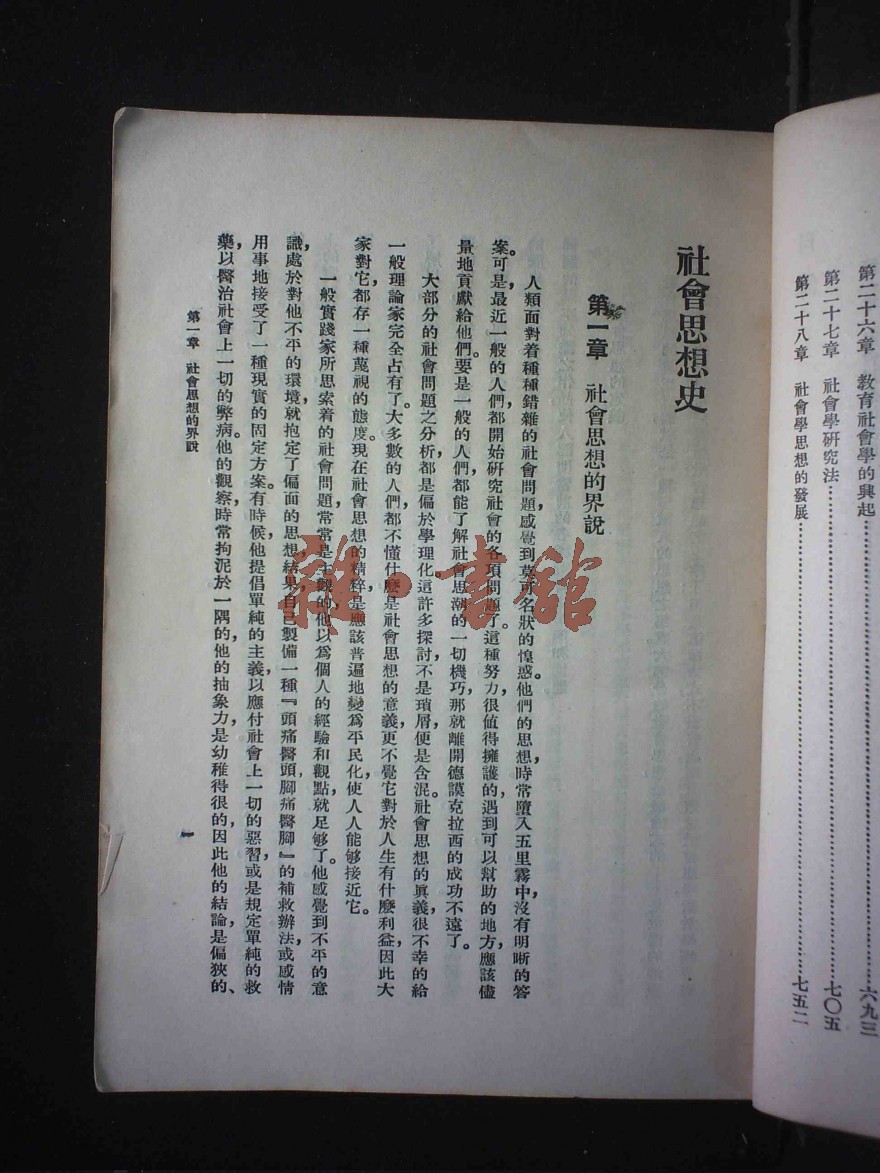 第二十六章　教育社會學的興起……六九三
第二十七章　社會學研究法……七〇五
第二十八章　社會學思想的發展……七五二
社會思想史
第一章　社會思想的界說
人類面對着種種錯雜的社會問題，感覺到莫可名狀的惶惑。他們的思想，時常墮入五里霧中，沒有明晰的答
案。可是，最近一般的人們都開始研究社會的各項問題了。這種努力，很值得擁護的，遇到可以幫助的地方，應該儘
量地貢獻給他們。要是一般的人們，都能了解社會思潮的一切機巧，那就離開德謨克拉西的成功不遠了。
大部分的社會問題之分析，都是偏於學理化。這許多探討，不是瑣屑，便是含混。社會思想的眞義，很不幸的給
一般理論家完全占有了。大多數的人們，都不懂什麼是社會思想的意義，更不覺它對於人生有什麼利益，因此大
家對它，都存一種蔑視的態度。現在社會思想的精粹，是應該普遍地變爲平民化，使人人能够接近它。
一般實踐家所思索着的社會問題，常常是主觀的，他以爲個人的經驗和觀點，就足够了。他感覺到不平的意
識，處於對他不平的環境，就抱定了偏面的思想，結果自己製備一種『頭痛醫頭，脚痛醫脚』的補救辦法，或感情
用事地接受了一種現實的固定方案。有時候，他提倡單純的主義，以應付社會上一切的惡習，或是規定單純的救
藥，以醫治社會上一切的弊病。他的觀察，時常拘泥於一隅的，他的抽象力，是幼稚得很的，因此他的結論，是偏狹的、
第一章　社會思想的界說
一
雜·書館